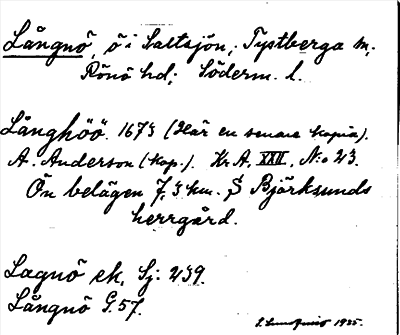 Långnö, ö i Saltsjön, Tystberga sn,
Rönö hd; Söderm. l.
Långhöö. 1673 (Här en senare kopia).
A. Anderson (kop.). Kr. A. XXII, N:o 23.
Ön belägen 7,3 km. S Björksunds
herrgård.
Lagnö ek. Sj. 239.
Långnö G. 57.
S. Lundqvist 1925.